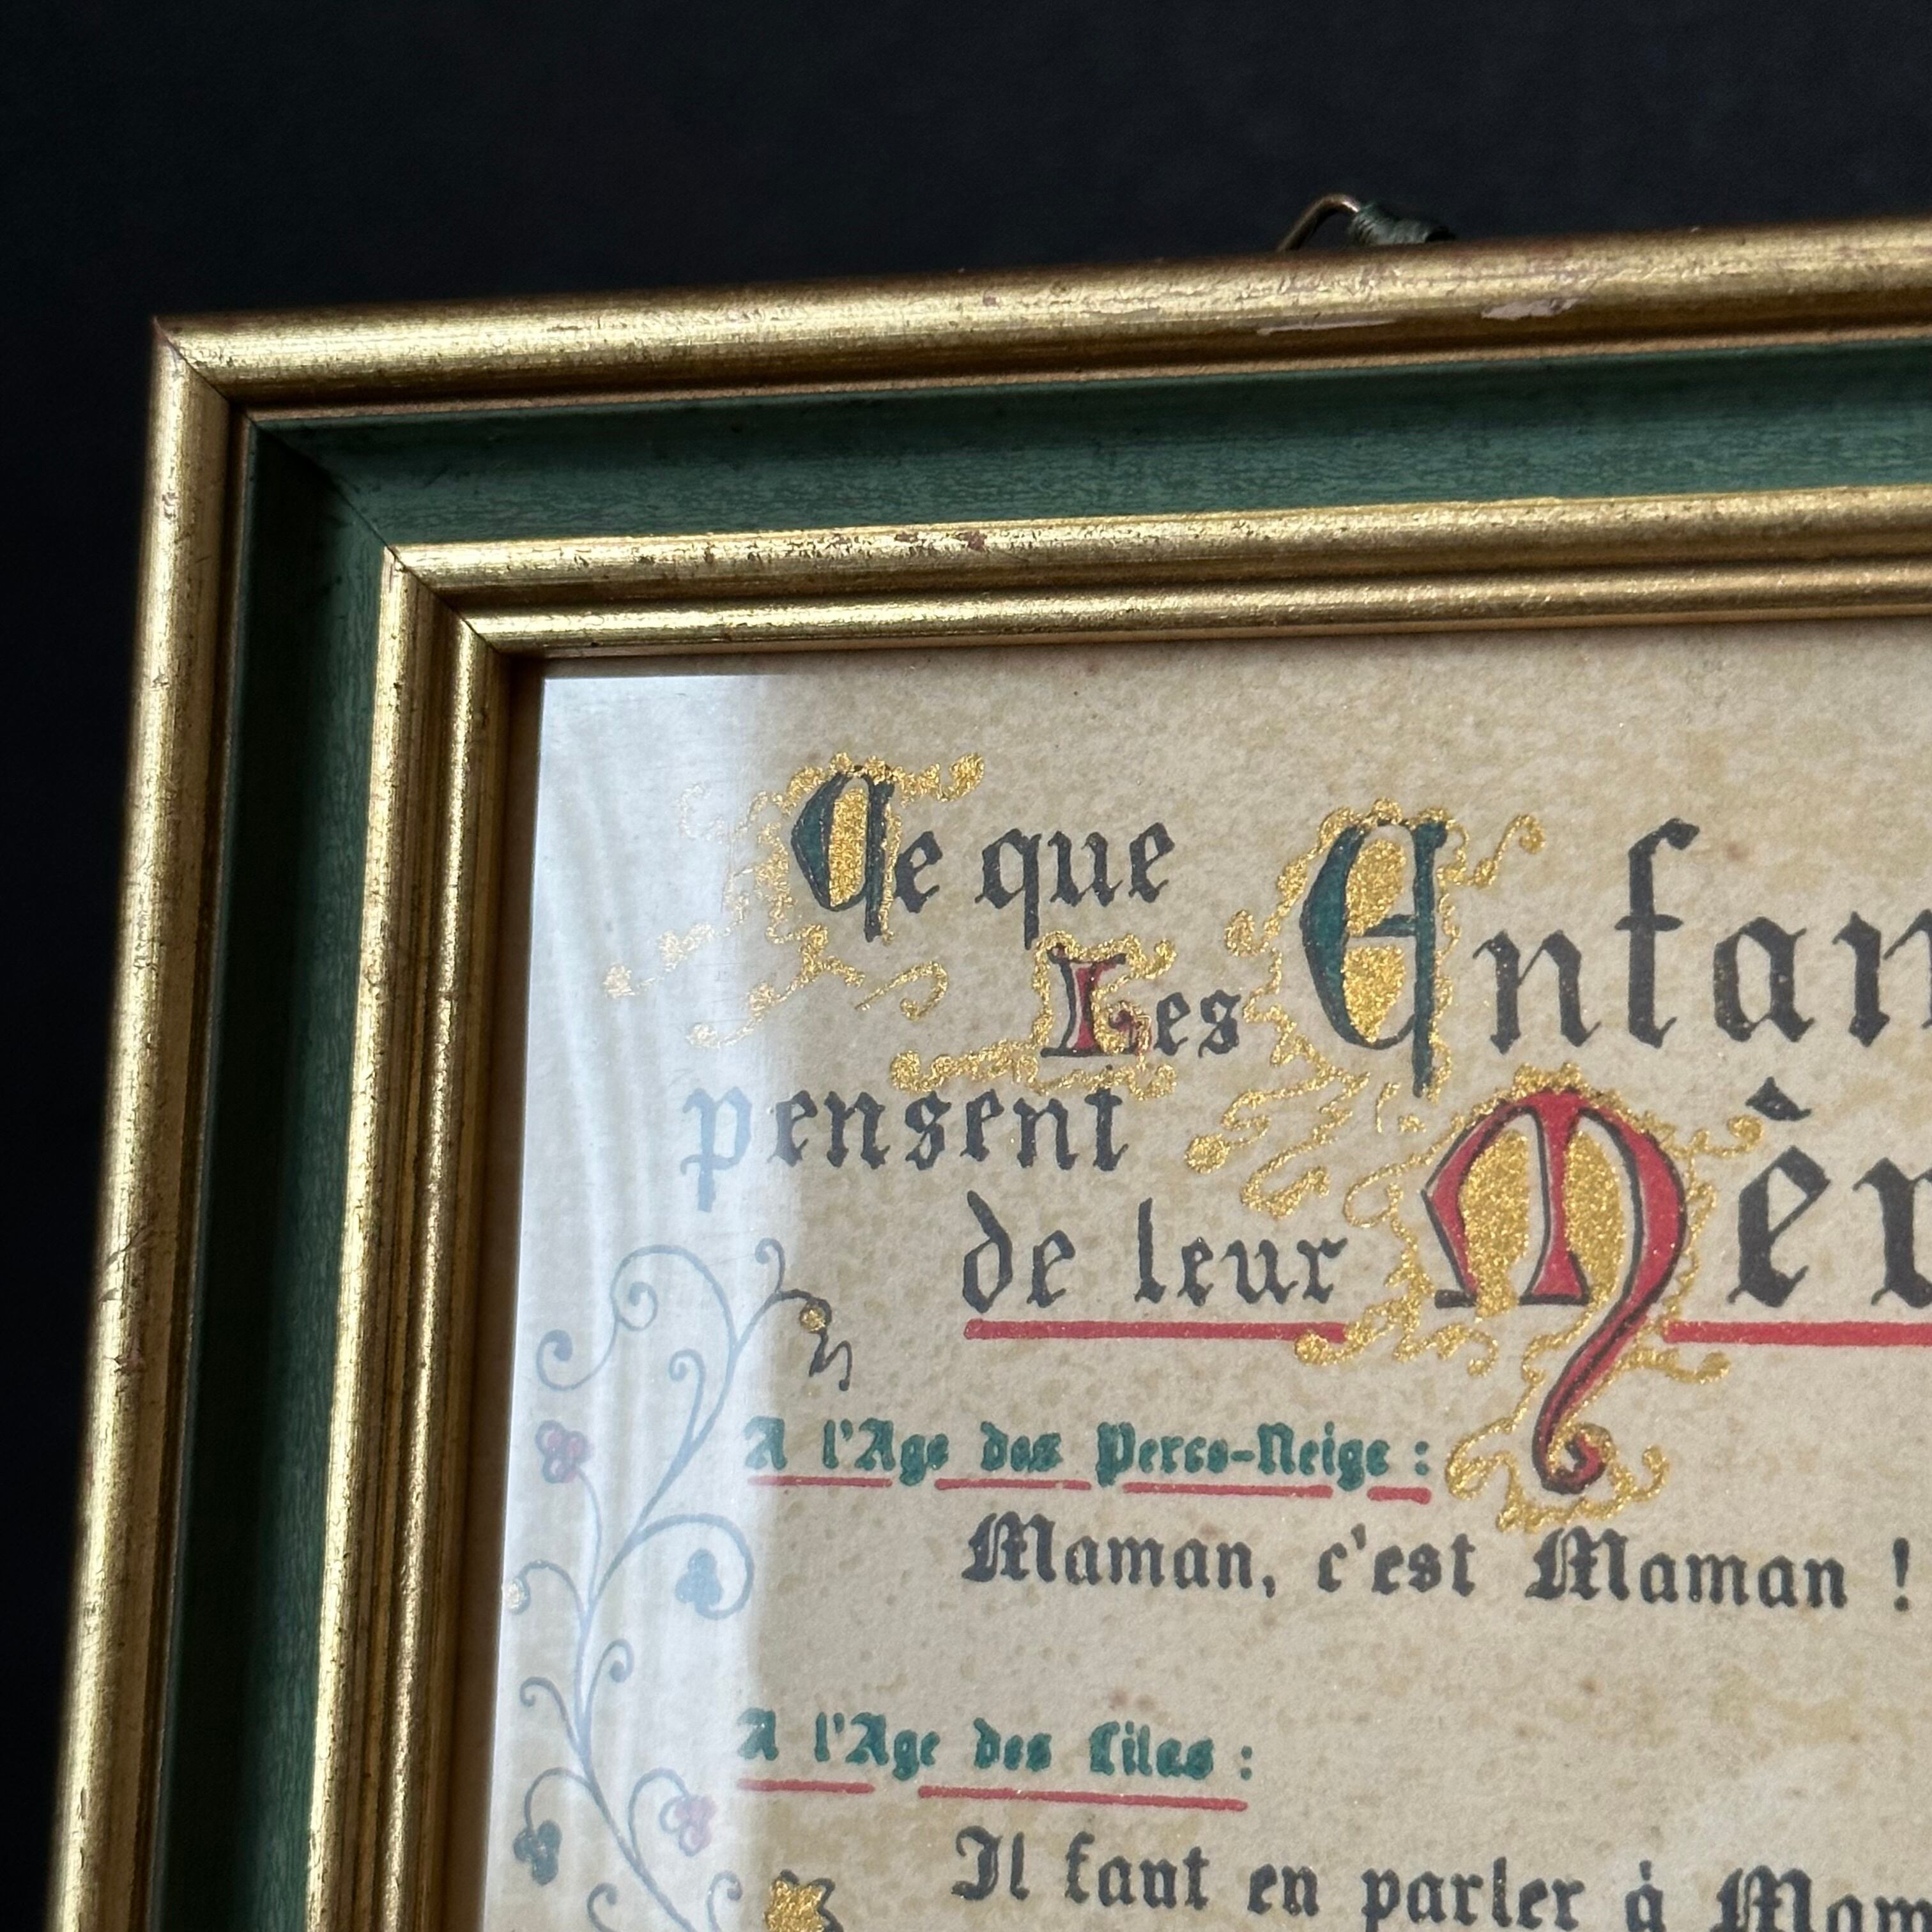 Ce que
Les Enfan
pensent
de leur Mèr
A l'Age des Perce-Neige :
Maman, c'est Maman !
A l'Age des Lilas :
Il faut en parler à Mam